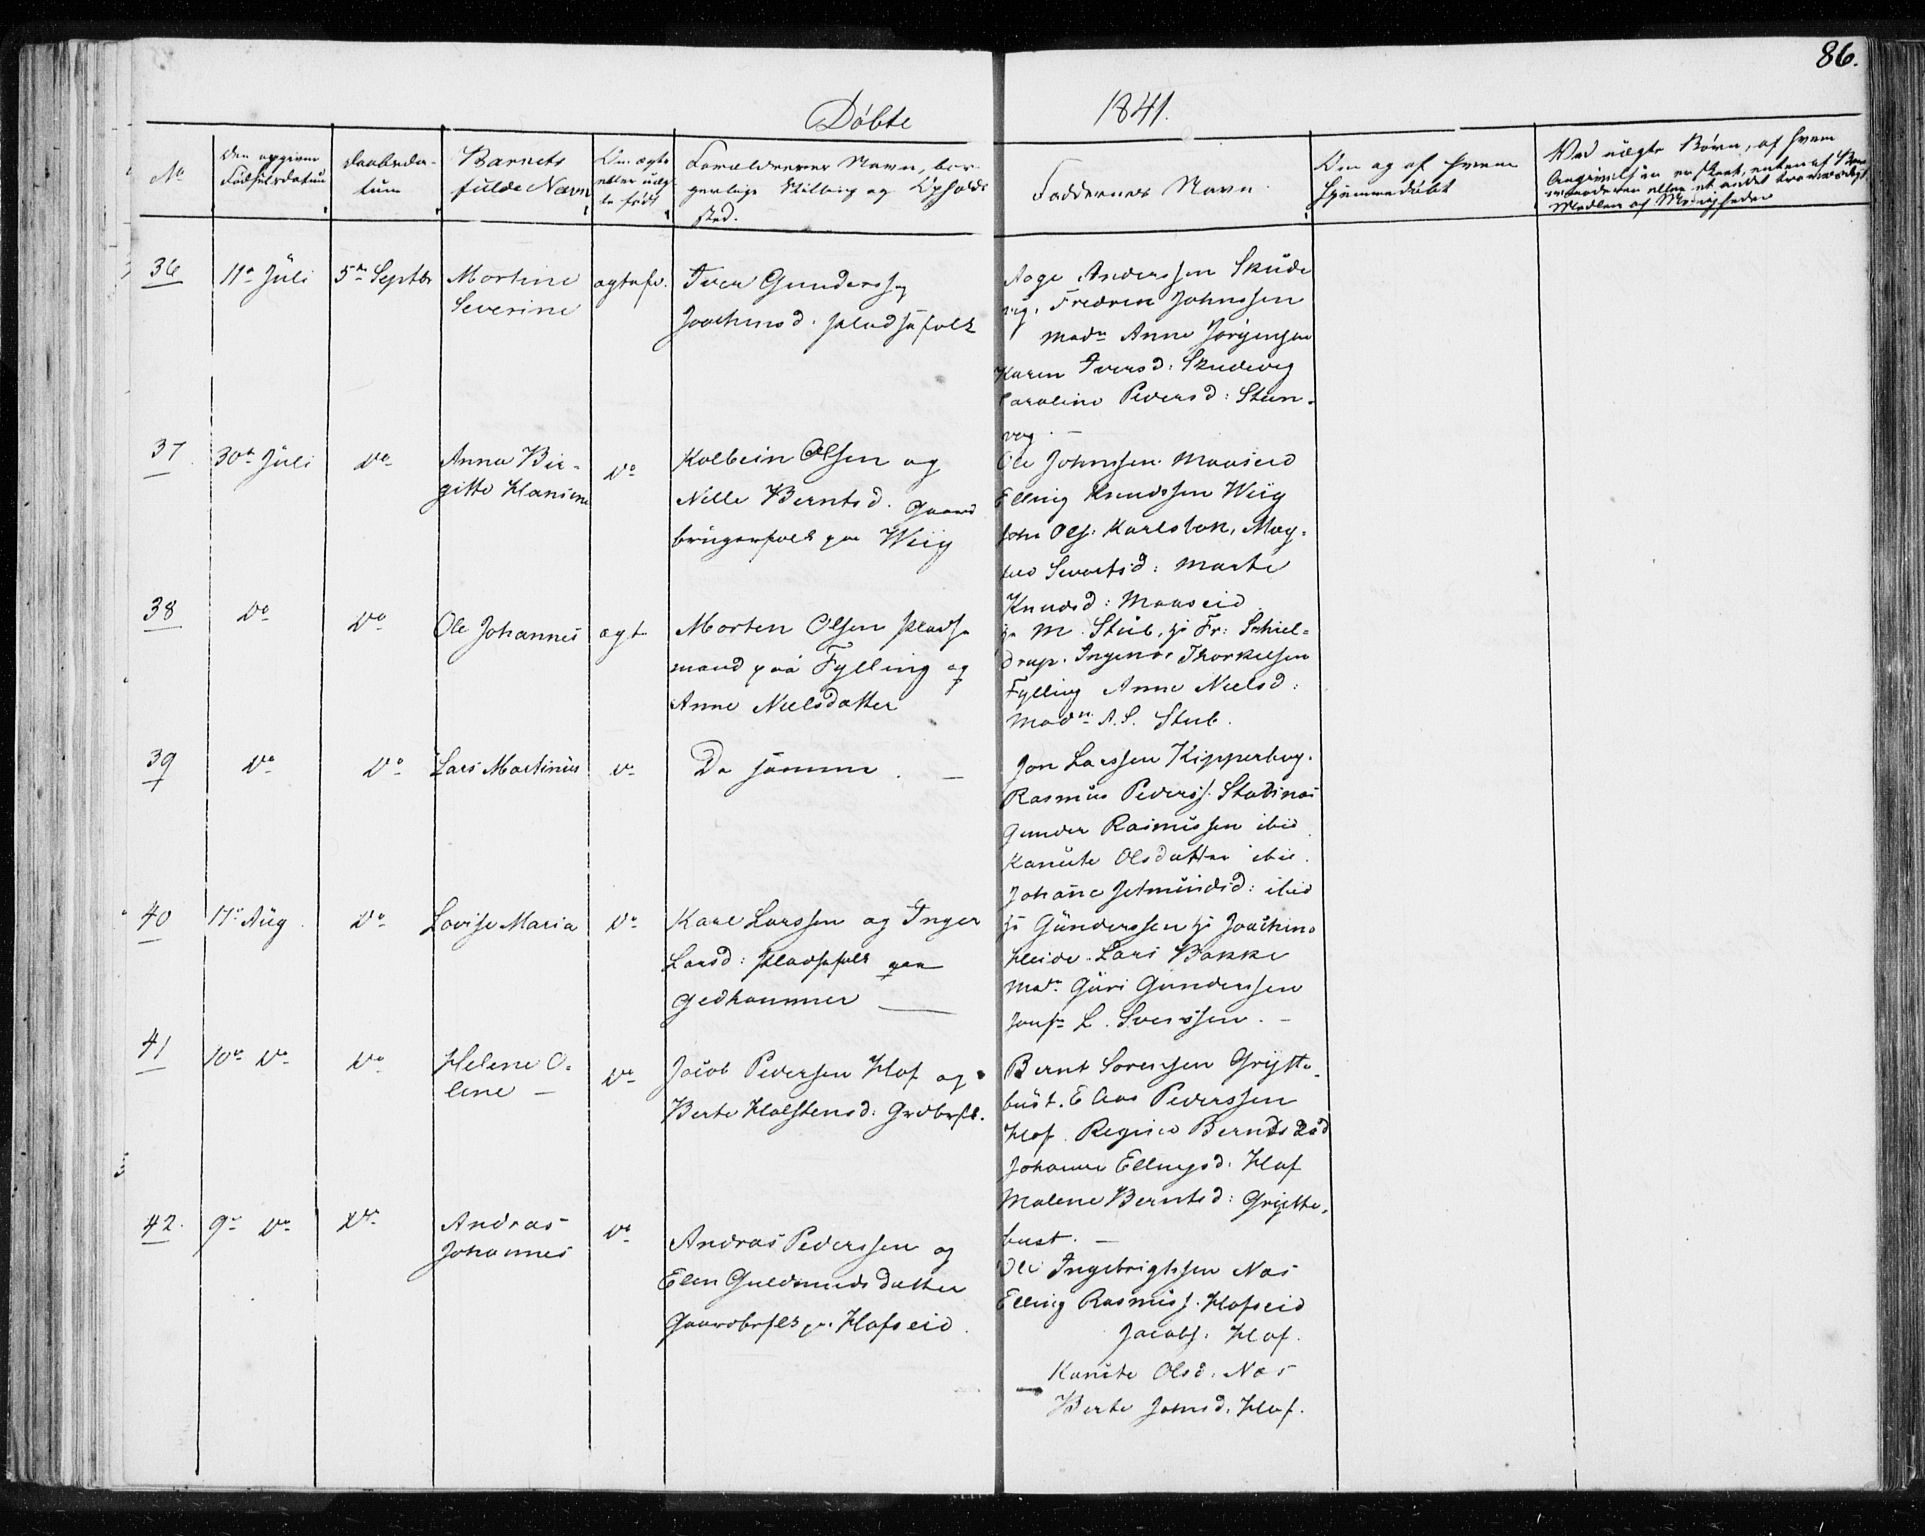 86.
Døbte 1841.
No
Den opgivne Fødselsdatum
Daabsda-
tum
Barnets
fulde Navn
Om ægte
eller uæg-
te født
Forældrenes Navn, bor-
gerlige Stilling og Opholds
sted.
Faddernes Navn.
Om og af hvem
hjemmedøbt
Ved uægte Børn, af hvem
Angivelsen er skeet, enten af
eller et andet troværdigt
Medlem af Menigheden
36
11te Juli
5te Septbr
Martine
Severine
ægtefø.
Iver Gunders. og
Joachimsd. pladsfolk
Aage Anderssen Skude
vig. Fredrik Johnssen
Madm Anne Jørgensen
Karen Iversd: Skudevig
Caroline Pedersd: Steen-
vog. —
37
30te Juli
do
Anna Bir-
gitte Hansine
do
Kolbein Olsen og
Nille Berntsd. Gaard
brugerfolk paa Wiig
Ole Johnssen Maaseid
Elling Knudssen Wiig
John Ols. Karlsbak, Mag-
Sivertsd: Marte
Knudsd: Maaseid
38
do
do
Ole Johannes
ægt
Morten Olsen plads
mand paa Fylling og
Anne Nielsdatter
hr M. Stub, hr Fr: Schiel-
drup. Ingebr Thorkelsen
Fylling Anne Nielsd:
Madm A.S. Stub.
39
do
do
Lars Martinus
do
De samme. —
Jon Larssen Kipperberg.
Rasmus Peders. Stadsnæs
Gunder Rasmussen ibid
Kanute Olsdatter ibid.
Johanne Jetmundsd: ibid
40
17de Aug.
do
Lovise Maria
do
Karl Larssen og Inger
Larsd: pladsfolk paa
Gedhammer —
hr Gunderssen hr Joachim
Heide. Lars Bakke
Madm Guri Gunderssen
Jomfr L. Iverssen. —
41
10de do
do
Helene O-
line —
do
Jacob Pedersen Hof og
Berte Holstensd: Grdbrflk.
Bernt Sørenssen Grytte-
bust. Elias Pederssen
Hof. Regine Berndsd
Johanne Ellingsd: Hof
Malene Berntsd: Grytte-
bust. —
42.
9de do
do
Andras
Johannes
do
Andras Pederssen og
Elen Guldmundsdatter
Gaardbrflk paa Hofseid.
Ole Ingebrigtssen Næs
Elling Rasmuss. Hofseid
Jacobs. Hof.
Kanute Olsd. Næs
Berte Johnsd. Hof.